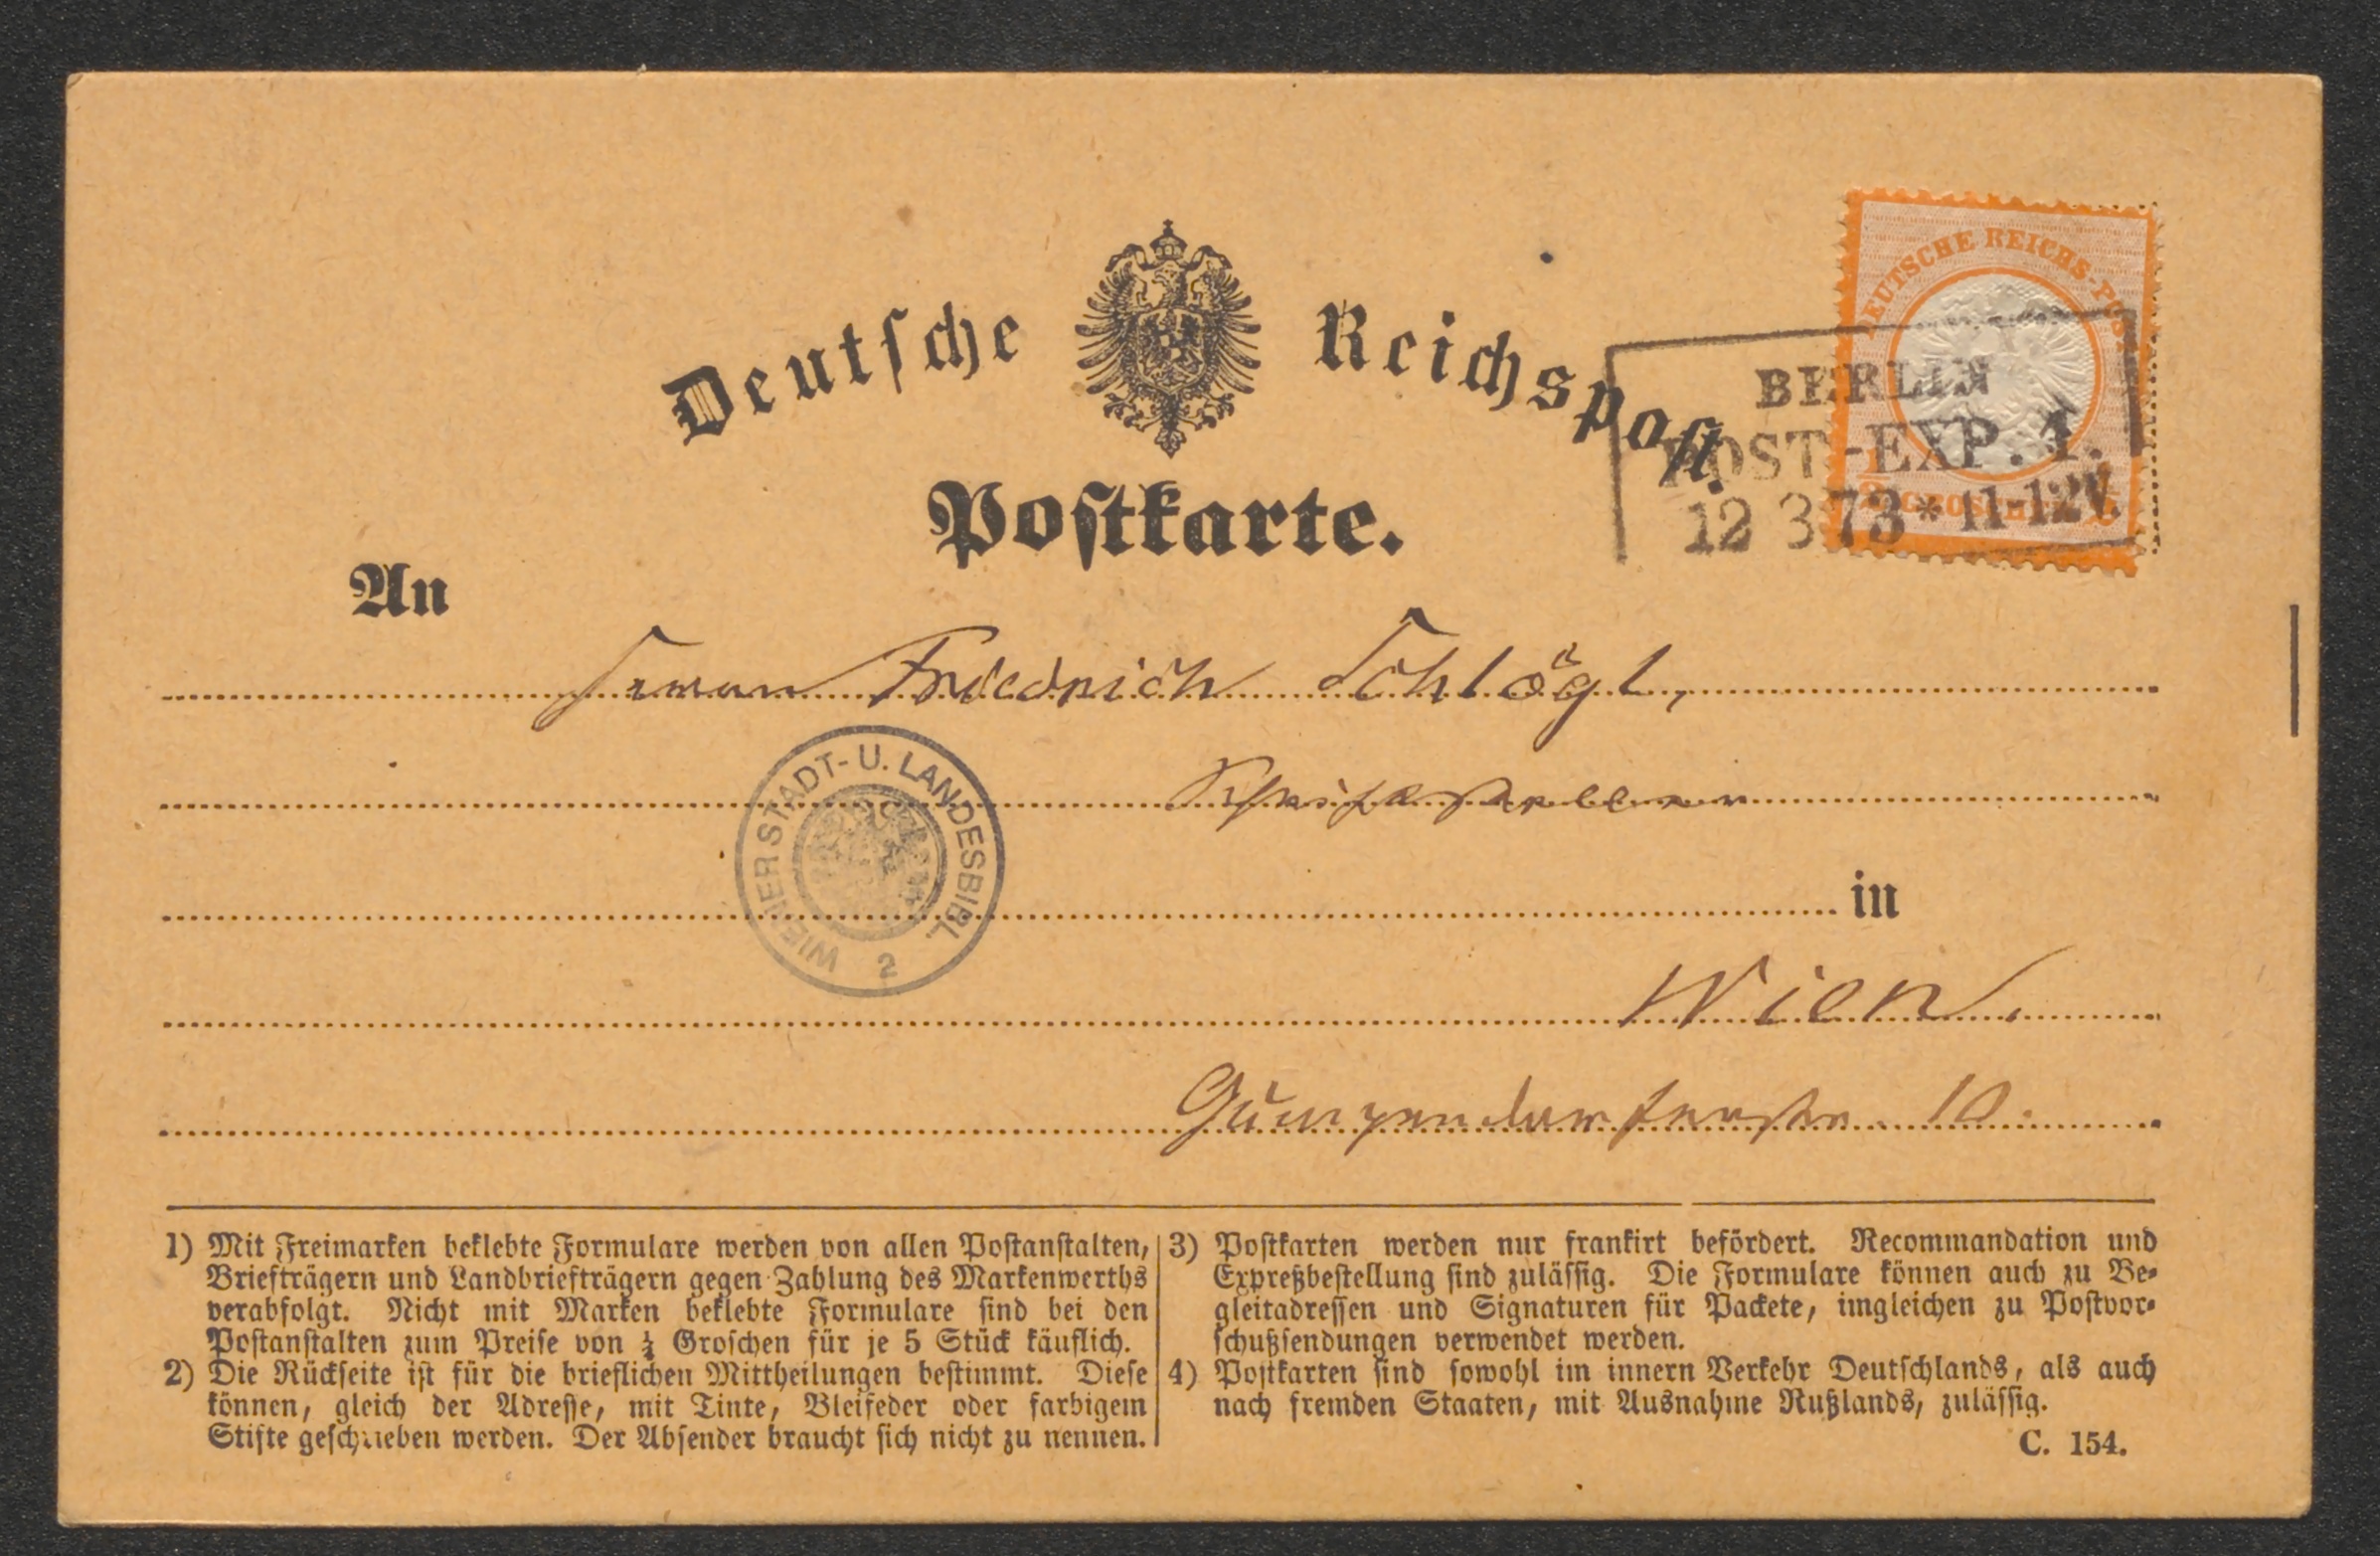 Deutsche Reichspost.
DEUTSCHE REICHS-POST
BERLIN
POST-EXP. 1.
12 3 73 * 11-12V.
Postkarte.
An
Herrn Friedrich Schlögl,
Schriftsteller
WIENER STADT- U. LANDESBIBL.
2
in
Wien.
Gumpendorferstr. 10.
1) Mit Freimarken beklebte Formulare werden von allen Postanstalten,
Briefträgern und Landbriefträgern gegen Zahlung des Markenwerths
verabfolgt. Nicht mit Marken beklebte Formulare sind bei den
Postanstalten zum Preise von ¼ Groschen für je 5 Stück käuflich.
2) Die Rückseite ist für die brieflichen Mittheilungen bestimmt. Diese
können, gleich der Adresse, mit Tinte, Bleifeder oder farbigem
Stifte geschrieben werden. Der Absender braucht sich nicht zu nennen.
3) Postkarten werden nur frankirt befördert. Recommandation und
Expreßbestellung sind zulässig. Die Formulare können auch zu Be-
gleitadressen und Signaturen für Packete, imgleichen zu Postvor-
schußsendungen verwendet werden.
4) Postkarten sind sowohl im innern Verkehr Deutschlands, als auch
nach fremden Staaten, mit Ausnahme Rußlands, zulässig.
C. 154.